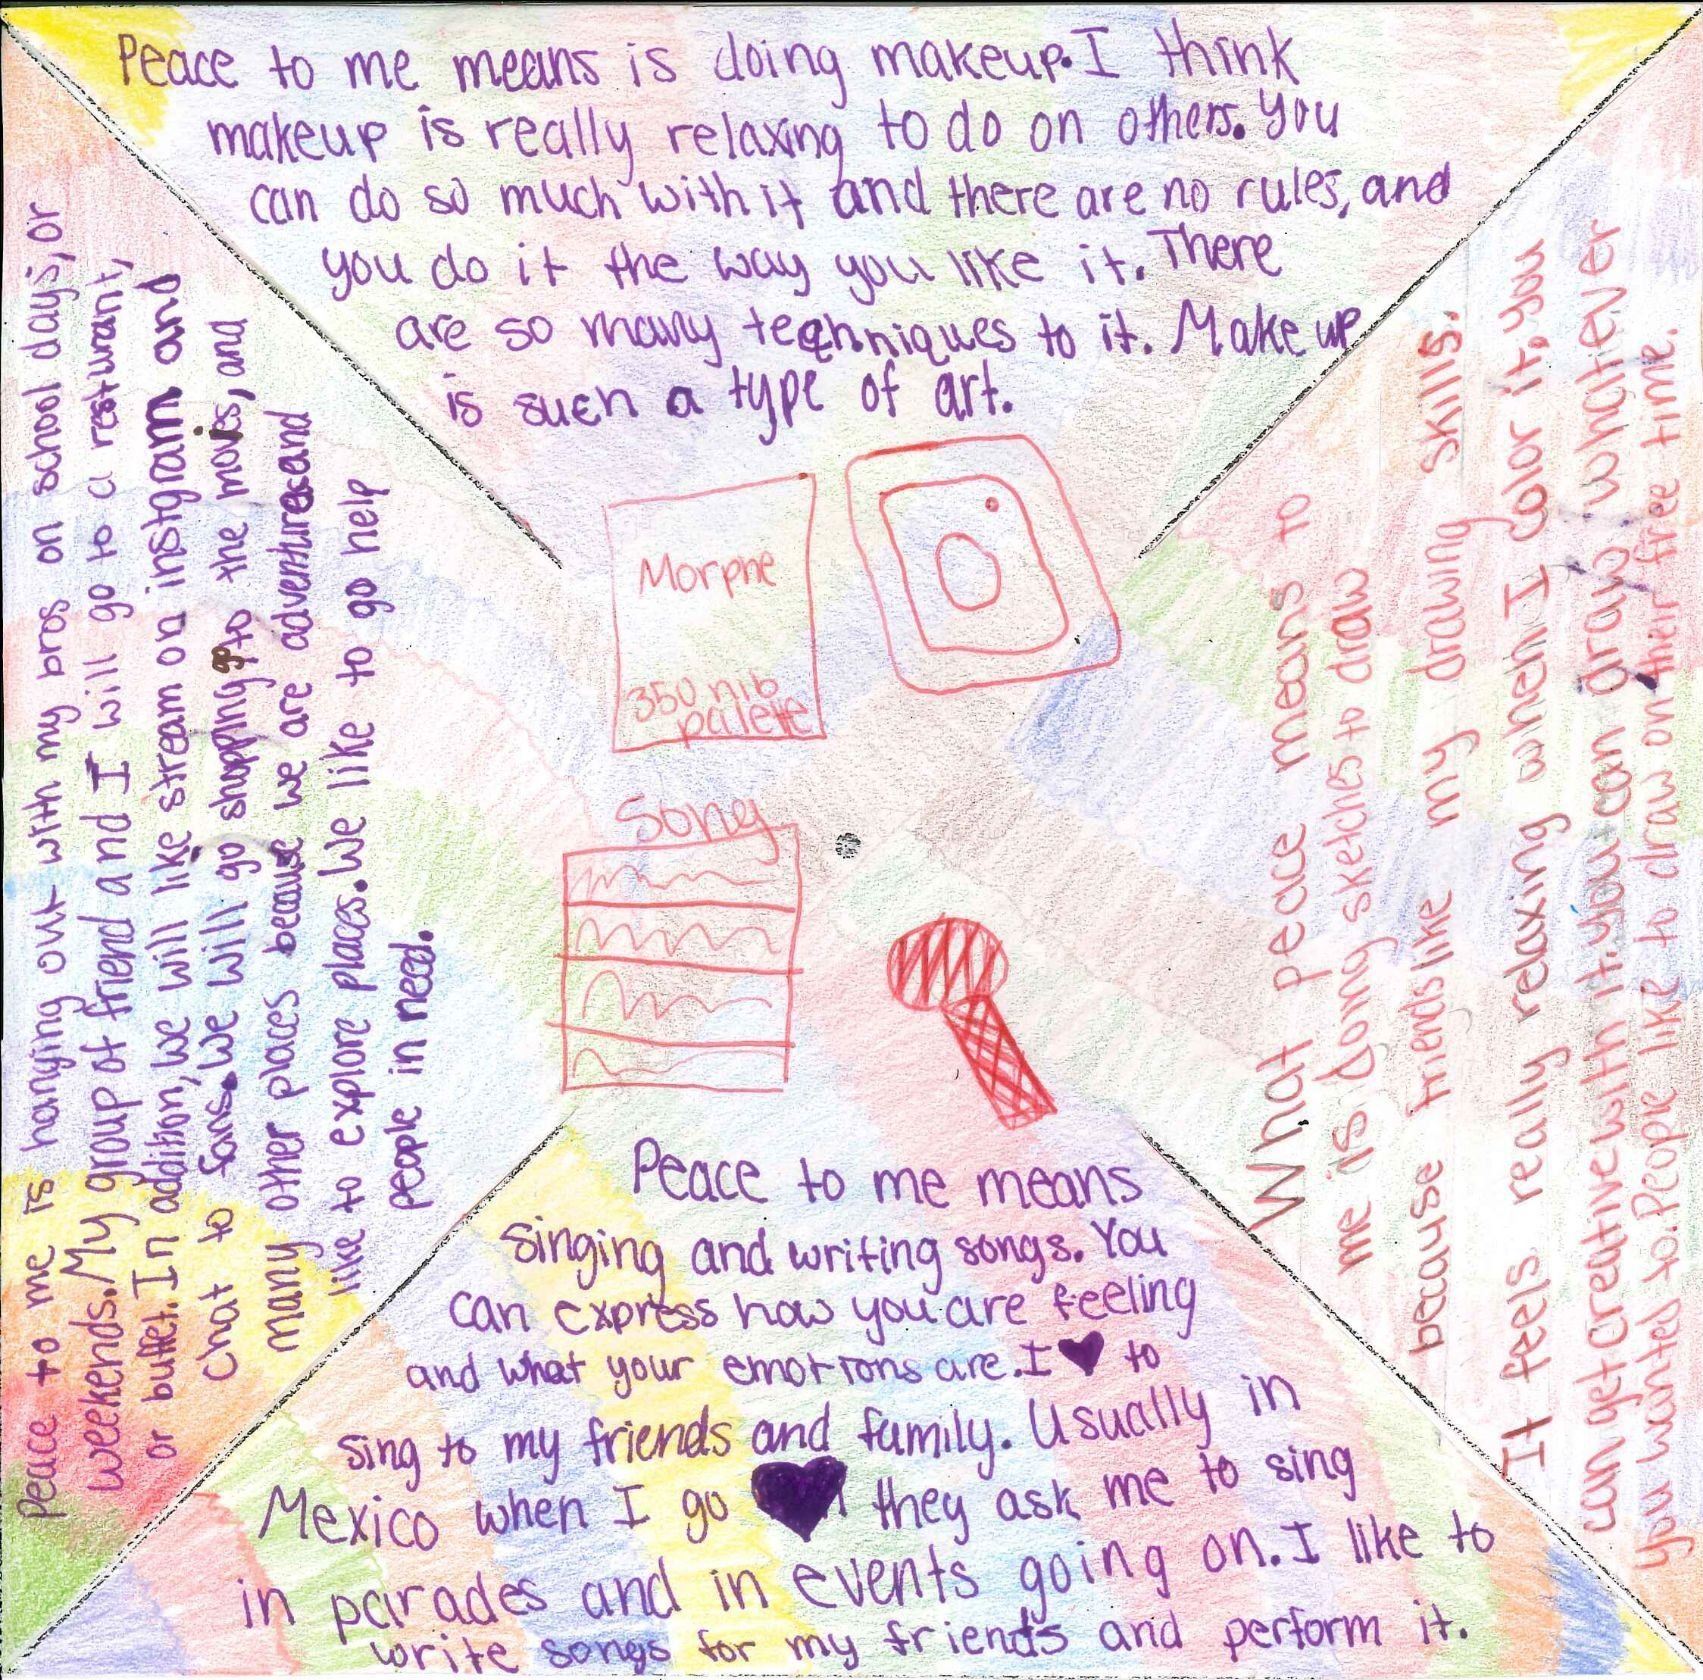 Peace to me means is doing makeup. I think
makeup is really relaxing to do on others. You
can do so much with it and there are no rules, and
you do it the way you like it. There
are so many techniques to it. Make up
is such a type of art.
Morphe
350 nib
palette
Song
Peace to me is hanging out with my bros on school days, or
weekends. My group of friend and I will go to a resturant,
or buffet. In addition, we will like stream on instgram and
chat to fans. We will go shopping, go to the movies, and
many other places because we are adventures and
like to explore places. We like to go help
people in need.
What peace means to
me is doing sketches to draw
because friends like my drawing skills.
It feels really relaxing when I color it, you
can get creative with it. you can draw whatiever
you wanted to. People like to draw on their free time.
Peace to me means
singing and writing songs. You
can express how you are feeling
and what your emotions are. I ♥ to
sing to my friends and family. Usually in
Mexico when I go ♥ they ask me to sing
in parades and in events going on. I like to
write songs for my friends and perform it.